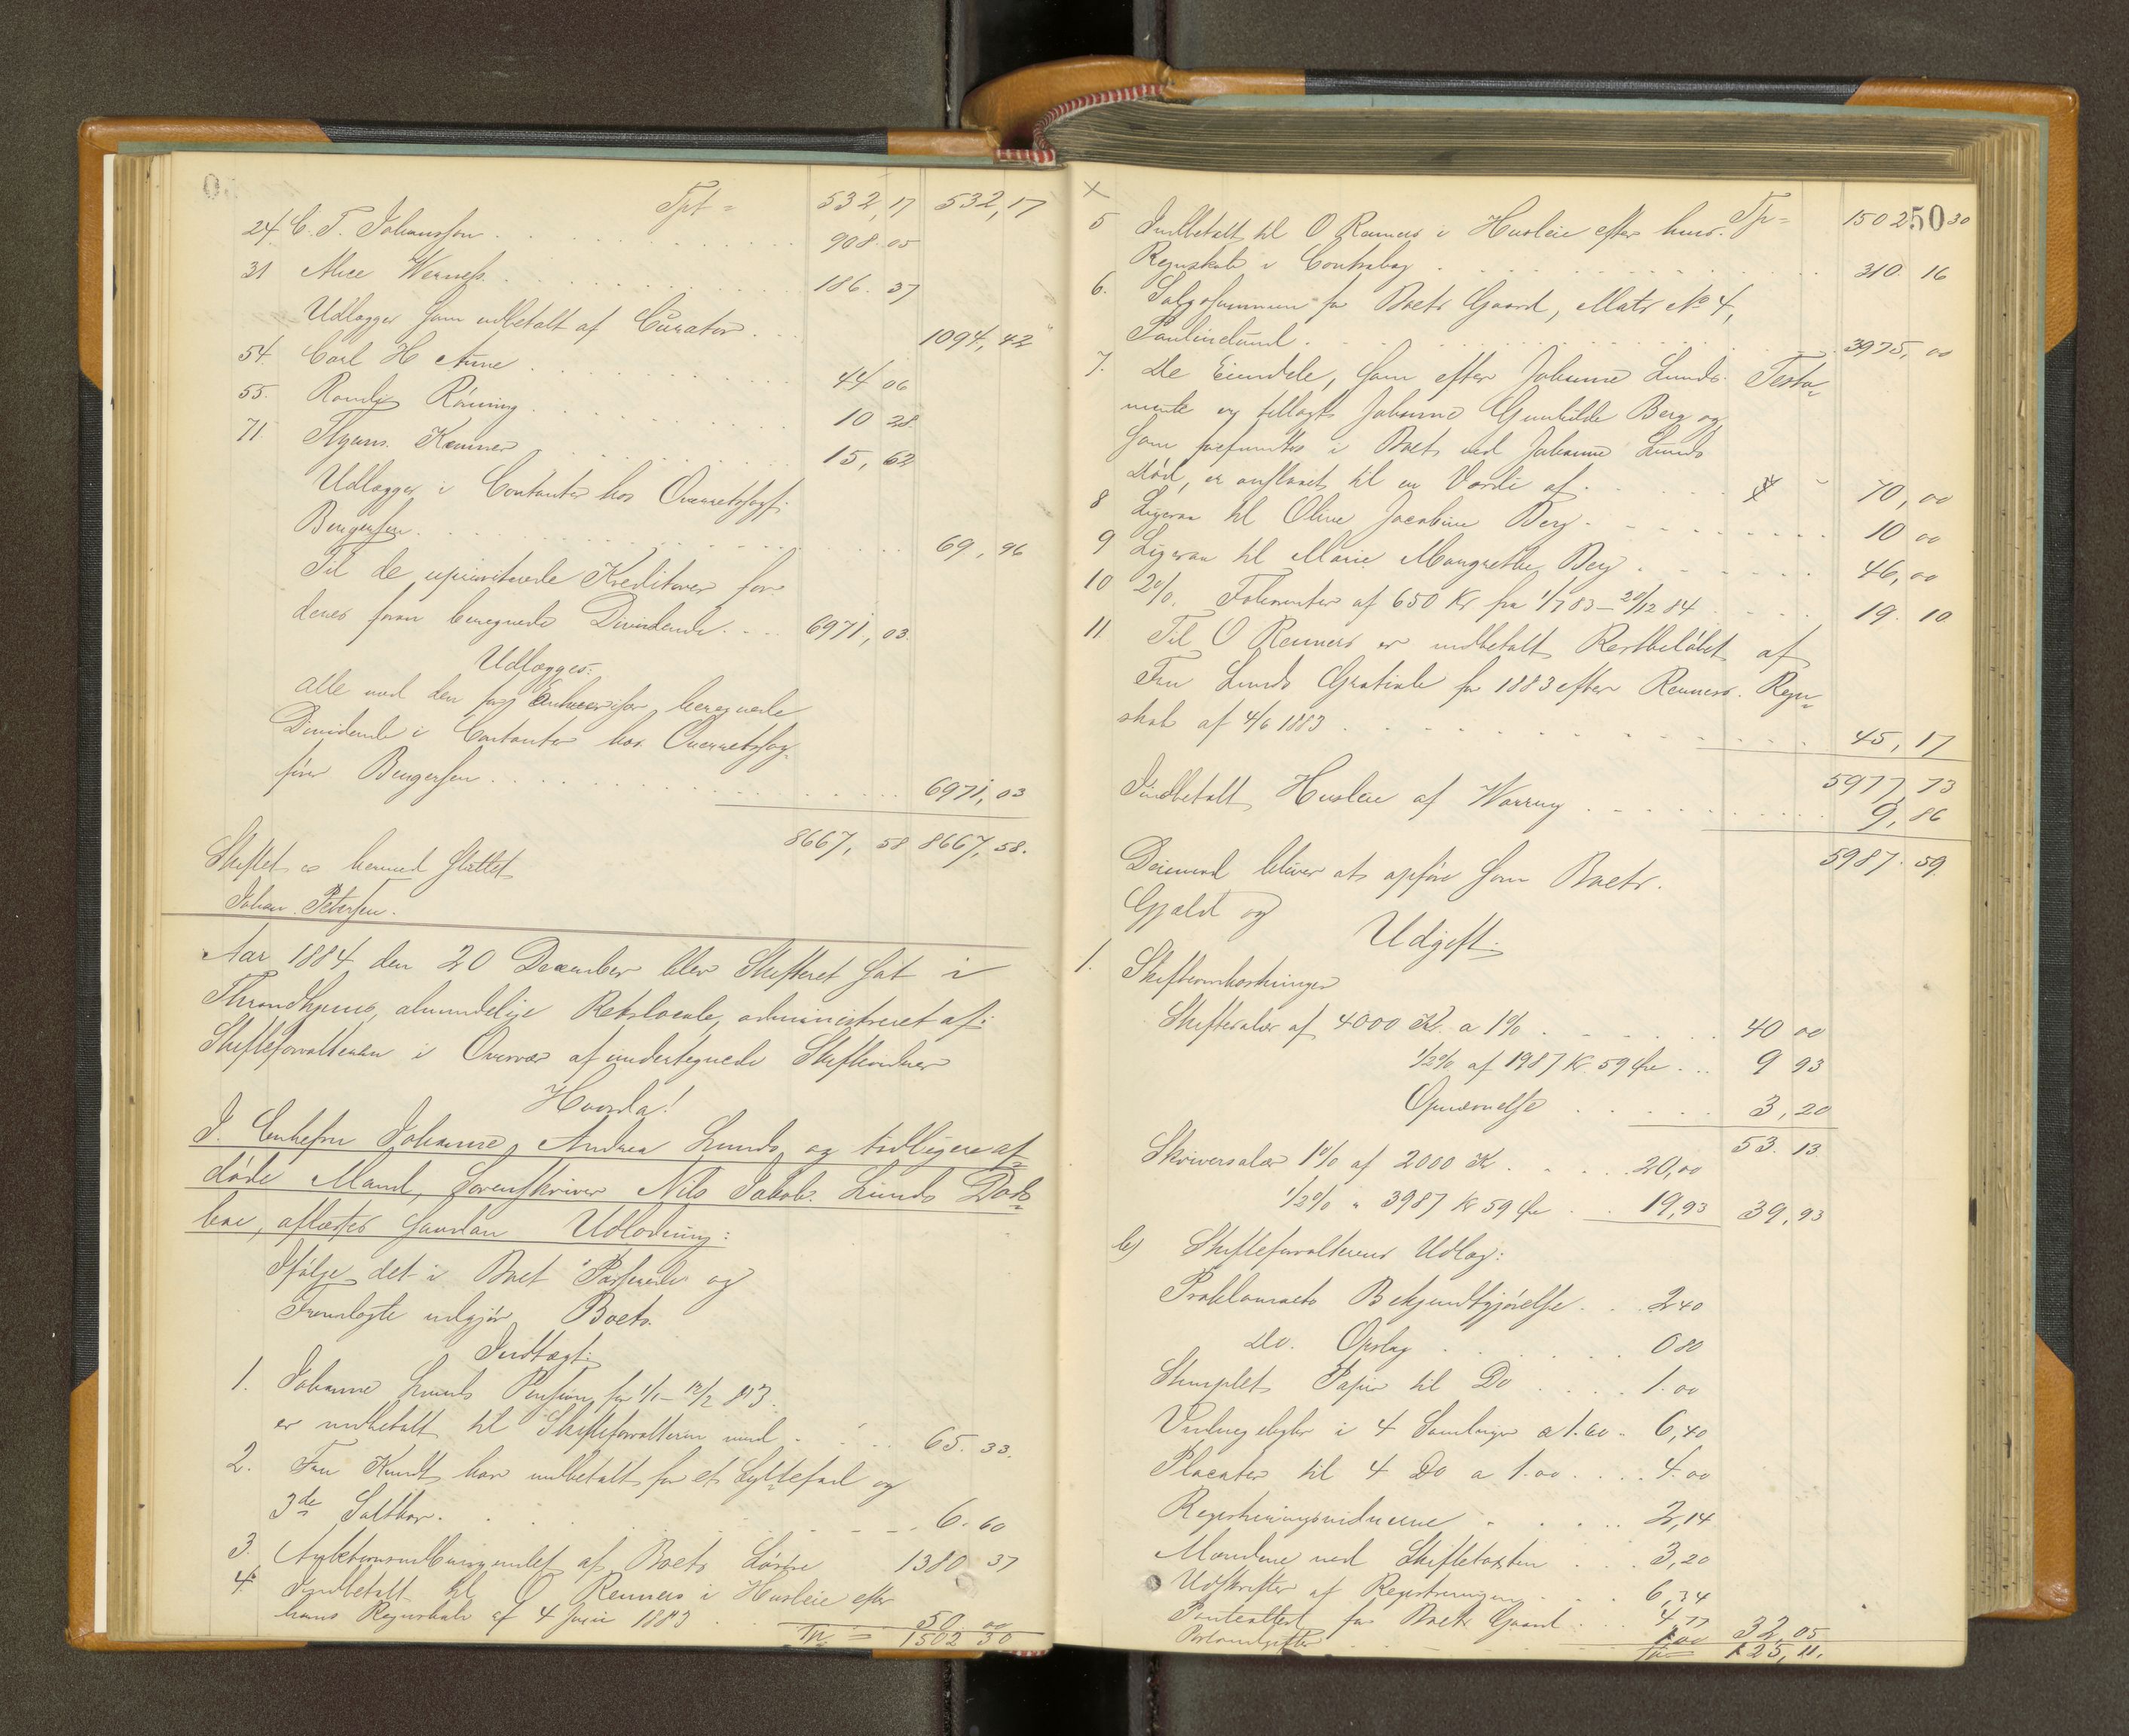 Tpt = 532,17 532,17
24 C. T. Johanssen 908.05
31 Alice Werness 186.37
Udlægges som udbetalt af Curator 1094,42
54. Carl H Aune 44 06
55. Randi Röning 10 28
71 Thjems. Kæmner 15,62
Udlægges i Contanter hos Overretssagf.
Bengersen 69,96
Til de uprioriterede Kreditorer for
deres foran beregnede Dividende 6971,03.
Udlægges:
alle ved den beregnede
Dividende i Contanter hos Overretssag-
fører Bengersen 6971,03
8667,58 8667,58.
Skiftet er hermed sluttet
Johan Petersen.
Aar 1884 den 20 December blev Skifteret sat i
Throndhjems almindelige Retslocale, administreret af
Skifteforvalteren i Overvær af undertegnede Skiftevidner
Hvorda!
I Enkefru Johanne Andrea Lunds og tidligere af-
døde Mand, Sorenskriver Nils Jakob Lunds Døds-
boe, aflæstes saadan Udlodning:
Ifölge det i Boet Passerede og
Fremlagte udgjör Boets
Indtægt:
1. Johanne Lunds Pension for 1/1 - 12/2 83.
er indbetalt til Skifteforvalteren med 65.33.
2. Fru Knudt har indbetalt for et Syltefad og
3de Saltkar. 6.60
3. Auktionsudbringendet af Boets Lösöre 1380 37
4. Indbetalt til O Renners i Husleie efter
hans Regnskab af 4 Juni 1883 50 00
Tp = 1502 30
50
Tp= 1502 30
5 Indbetalt til O Renners i Husleie efter hans
Regnskab i Contrabog 310.16
6. Salgssummen for Boets Gaard, Matr No 4,
Paulinelund 3975,00
7. De Eiendele, som efter Johanne Lunds Testa-
mente er tillagt Johanne Gunhilde Berg og
som forefandtes i Boet ved Johanne Lunds
Död, er anslaaet til en Værdi af 70,00
8 Ligesaa til Oline Jacobine Berg 10 00
9 Ligesaa til Marie Margrethe Berg 46,00
10 2%. Folierenter af 650 Kr fra 1/7 83 - 20/12 84 19.10
11. Til O Renners er indbetalt Restbelöbet af
Fru Lunds Gratiale for 1883 efter Renners Regn-
skab af 4/6 1883 45,17
5977,73
Indbetalt Husleie af Warvig 9,86
5987.59.
Derimod bliver at opföre som Boets
Gjæld og
Udgift:
1. Skifteomkostninger
Skiftesalær af 4000 Kr. a 1% 40 00
1/2% af 1987 Kr. 59 Øre 9 93
Opnævnelse 3,20
53.13
Skriversalær 1% af 2000 Kr 20,00
1/2% " 3987 Kr 59 Øre 19,93 39,93
b) Skifteforvalterens Udlæg:
Proklamaets Bekjendtgjörelse 2 40
Do. Opslag 0 80
Stemplet Papir til Do 1.00
i 4 Samlinger a 1.60 6,40
Placater til 4 Do a 1.00 4.00
Registreringsvidnerne 2,14
Mændene ved Skiftetaxten 3,20
Udskrifter af Registreringen 6,34
Panteattest for Boets Gaard 4,77 32,05
Portoudgifter 1 00
Tp= 125,11.